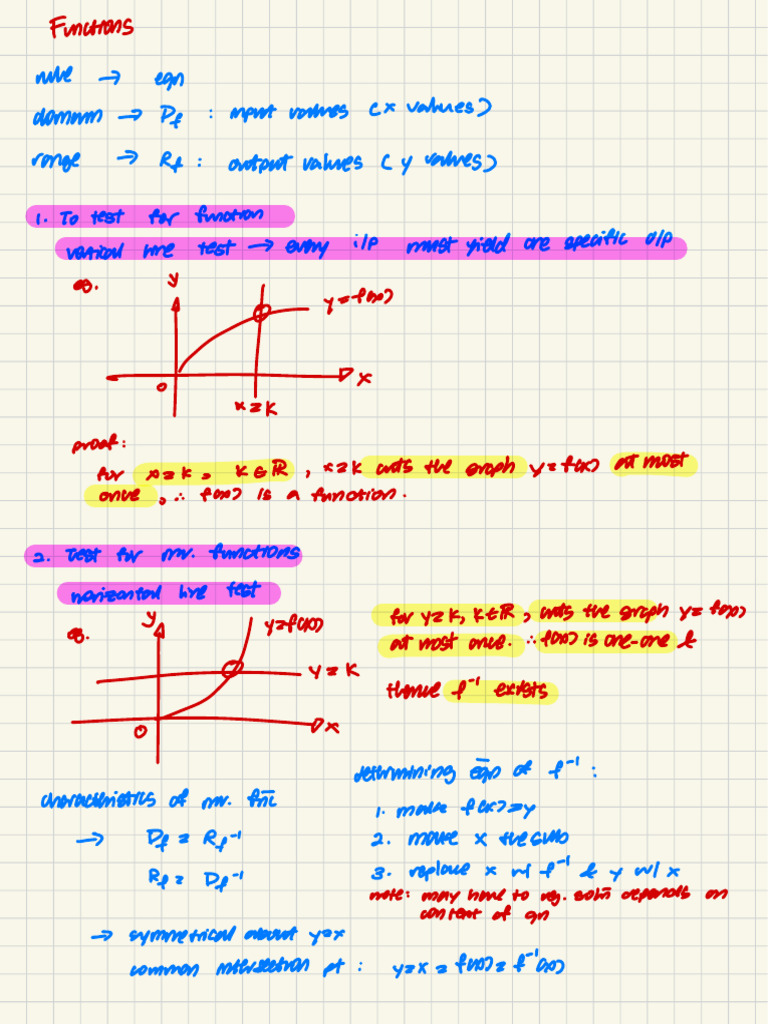 Functions
rule → eqn
domain → Df : input values (x values)
range → Rf : output values (y values)
1. To test for function
vertical line test → every i/p must yield one specific o/p
eg.
y
y=f(x)
0
x
x=k
proof:
for x=k, k∈ℝ, x=k cuts the graph y=f(x) at most
once, ∴ f(x) is a function.
2. Test for inv. functions
horizontal line test
eg.
y
y=f(x)
y=k
0
x
for y=k, k∈ℝ, cuts the graph y=f(x)
at most once. ∴ f(x) is one-one &
thence f⁻¹ exists
characteristics of inv. fnc
→ Df = Rf⁻¹
Rf = Df⁻¹
→ symmetrical about y=x
common intersection pt : y=x=f(x)=f⁻¹(x)
determining eqn of f⁻¹ :
1. make f(x)=y
2. make x the sub
3. replace x w/ f⁻¹ & y w/ x
note: may have to rej. soln depends on
context of qn